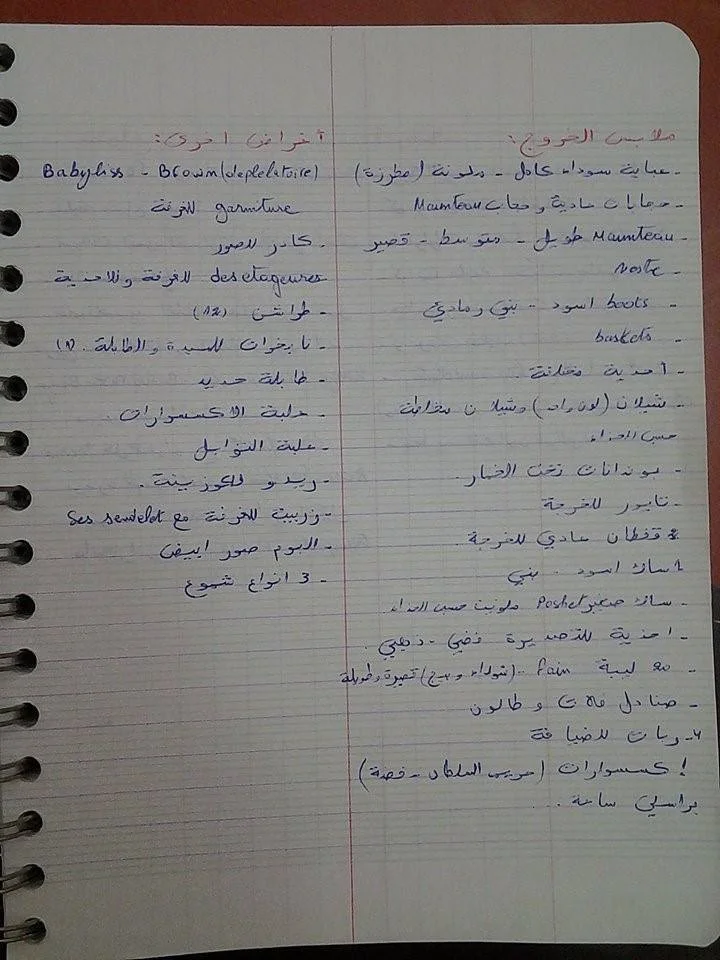 ملابس الخروج:
- عباية سوداء كامل - ملونة (مطرزة)
- حجابات عادية وحجاب Maunteau
- Maunteau طويل - متوسط - قصير
- Veste
- boots اسود - بني رمادي
- baskets
- أحذية مختلفة.
- شيلان (لون واحد) وشيلان مخلطة
حسب الحذاء
- بوندانات تحت الخمار.
- تايور للخرجة
2 قفطان عادي للخرجة
1 ساك اسود - بني
- ساك صغير Poshet ملونين حسب الحذاء.
- احذية للتصديرة فضي - ذهبي.
- 20 ليبة fain (سوداء وبيج) قصيرة وطويلة
- صنادل فلات وطالون
4 روبات للضيافة
! كسسوارات (حريم السلطان - فضة)
براسلي ساعة ...
أغراض اخرى:
Babyliss - Brown (deplelatoire)
garniture للغرفة
- كادر للصور
des etageures للغرفة وللاحذية
- طوابشن (12)
- نابخوان للسيدة والطابلة. (1)
- طابلة حديد
- علبة الاكسسوارات.
- علبة التوابل
- ريدو للكوزينة.
- زربية للغرفة مع ses sendelet
- البوم صور ابيض
- 3 انواع شموع